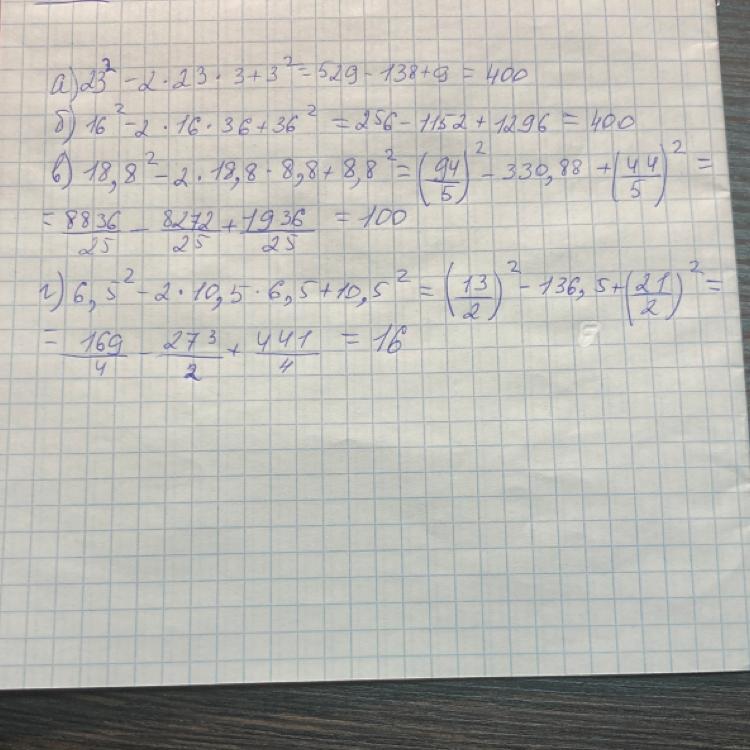 а) 23² - 2 · 23 · 3 + 3² = 529 - 138 + 9 = 400
б) 16² - 2 · 16 · 36 + 36² = 256 - 1152 + 1296 = 400
в) 18,8² - 2 · 18,8 · 8,8 + 8,8² = (94/5)² - 330,88 + (44/5)² =
= 8836/25 - 8272/25 + 1936/25 = 100
г) 6,5² - 2 · 10,5 · 6,5 + 10,5² = (13/2)² - 136,5 + (21/2)² =
= 169/4 - 273/2 + 441/4 = 16